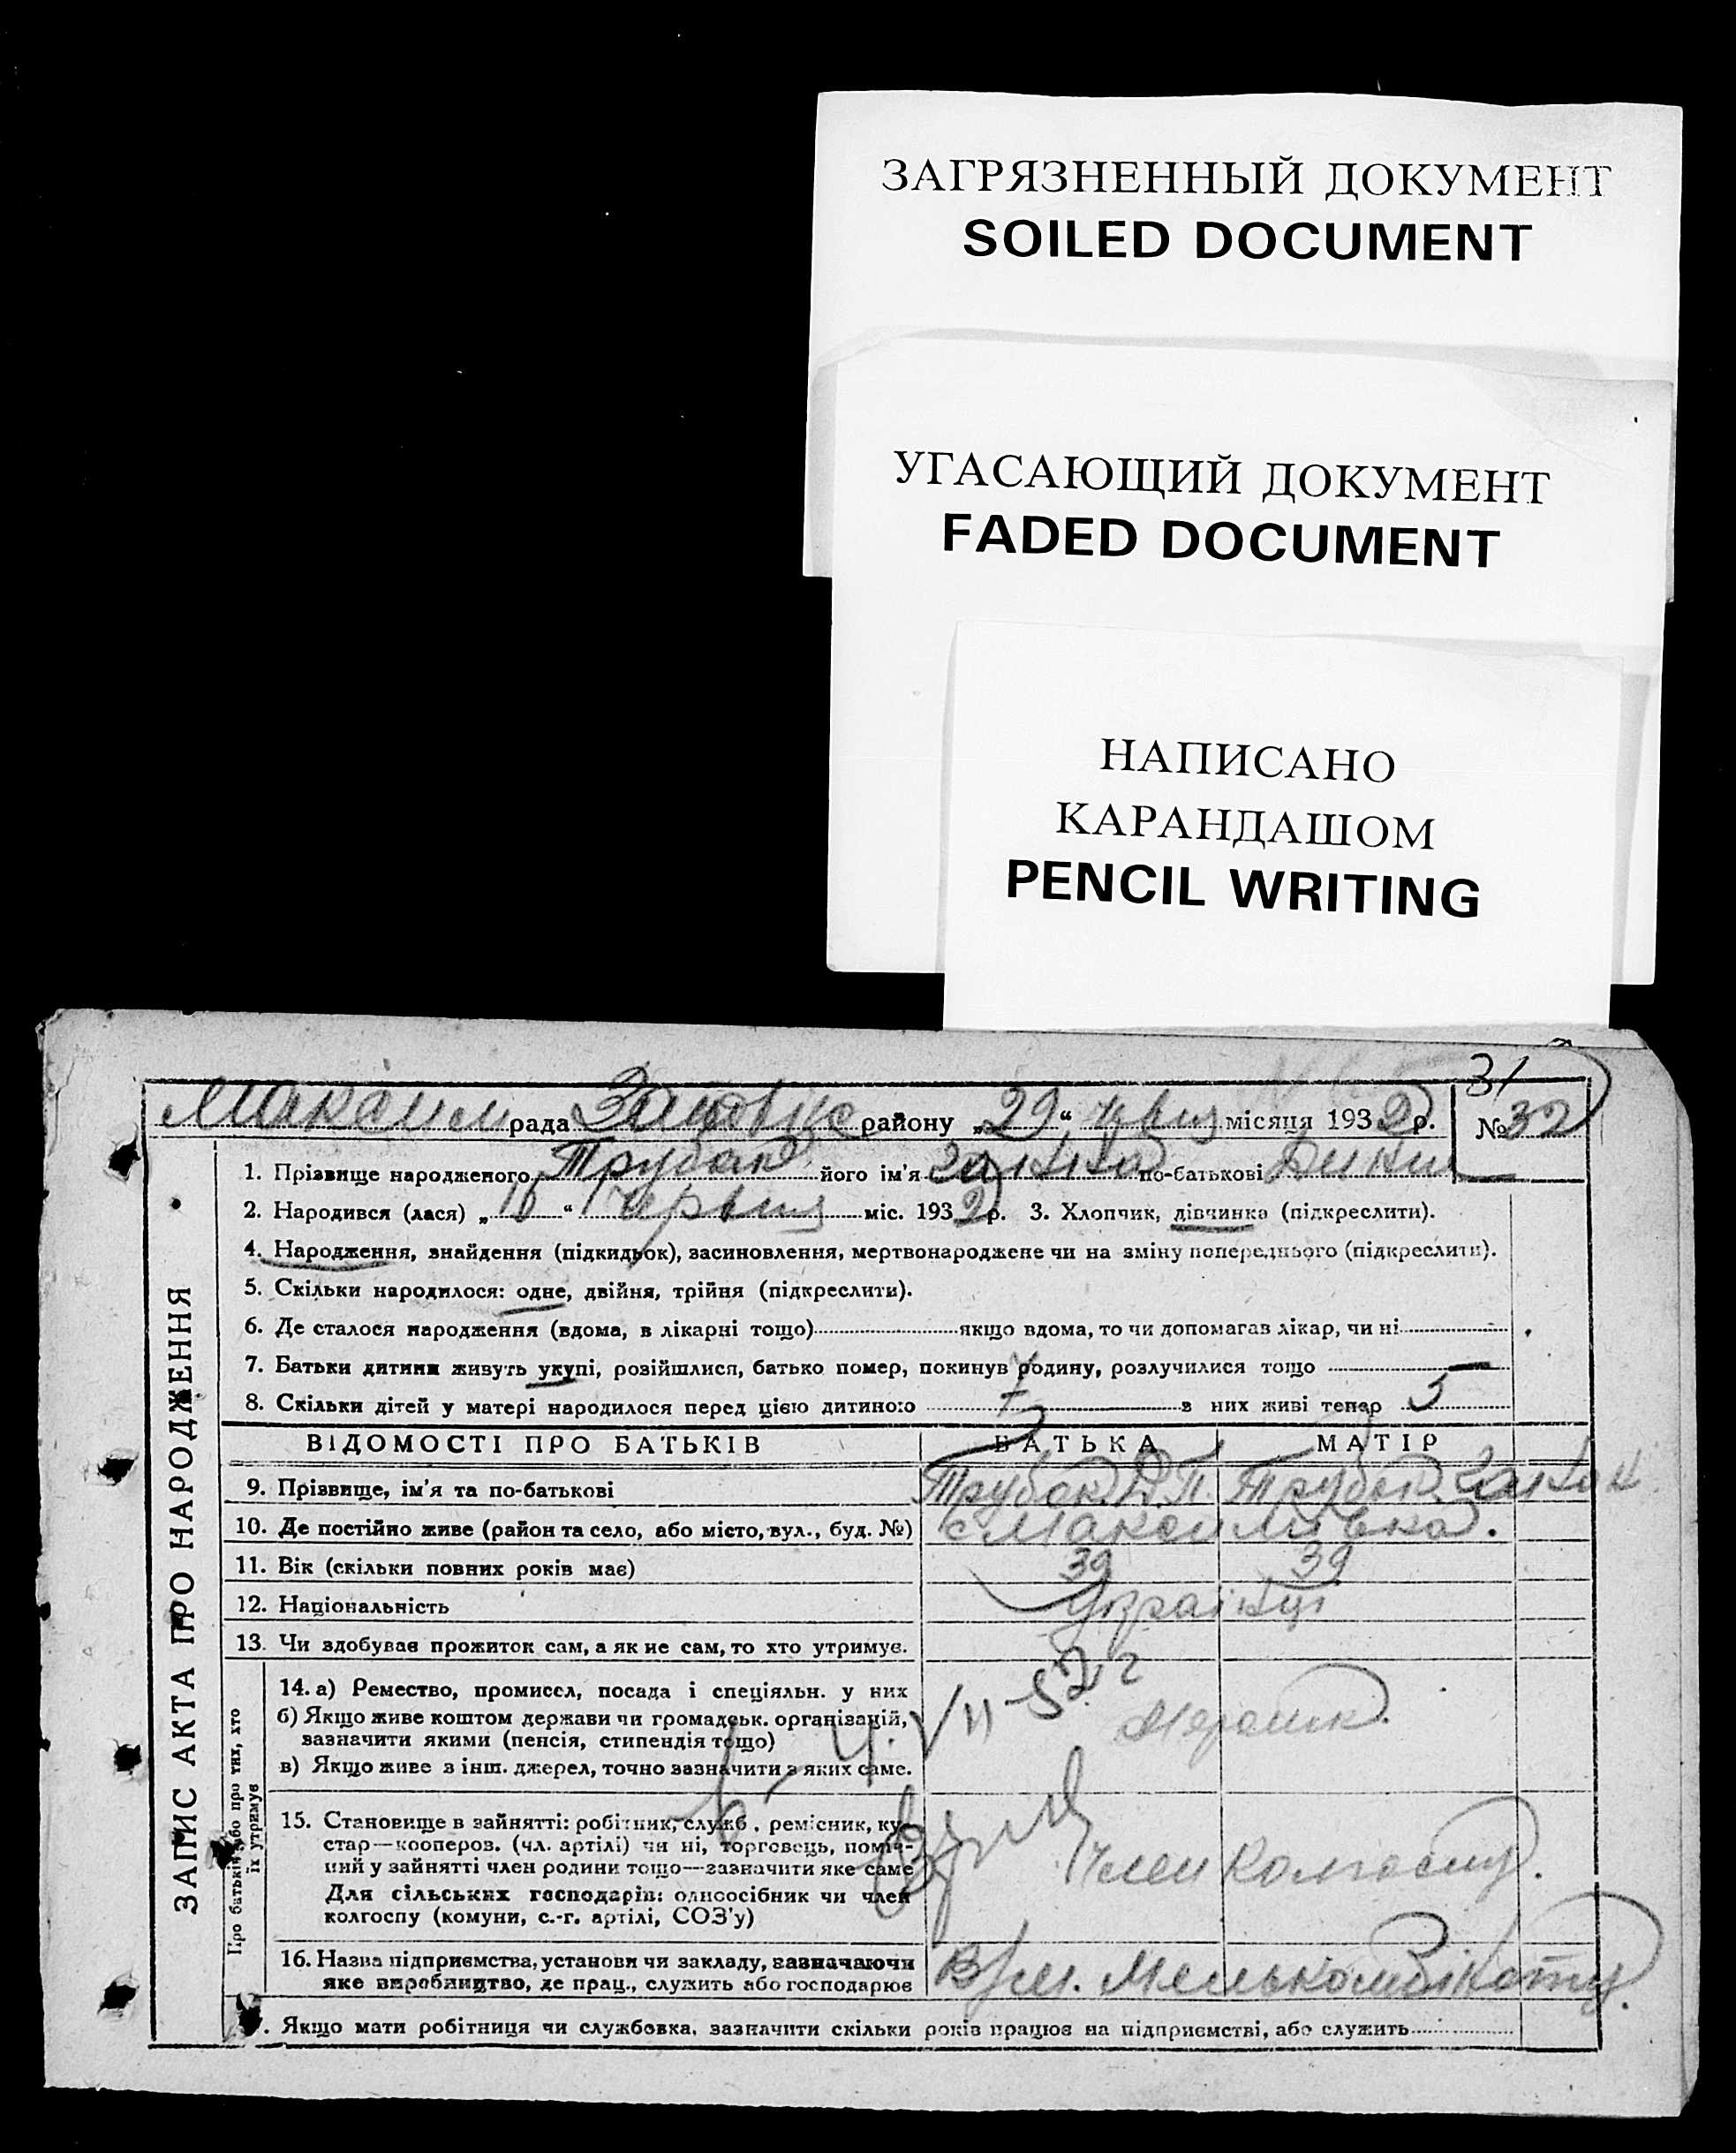 ЗАГРЯЗНЕННЫЙ ДОКУМЕНТ
SOILED DOCUMENT
УГАСАЮЩИЙ ДОКУМЕНТ
FADED DOCUMENT
НАПИСАНО
КАРАНДАШОМ
PENCIL WRITING
31
Максим рада района „29“ місяця 1932 р. № 32
1. Прізвище народженого Трубак його ім'я по-батькові
2. Народився (лася) „ “ Червня міс. 1932 р. 3. Хлопчик, дівчинка (підкреслити).
4. Народження, знайдення (підкидьок), засиновлення, мертвонароджене чи на зміну попереднього (підкреслити).
5. Скільки народилося: одне, двійня, трійня (підкреслити).
6. Де сталося народження (вдома, в лікарні тощо) якщо вдома, то чи допомагав лікар, чи ні
7. Батьки дитини живуть укупі, розійшлися, батько помер, покинув родину, розлучилися тощо —
8. Скільки дітей у матері народилося перед цією дитиною з них живі тепер 5
ВІДОМОСТІ ПРО БАТЬКІВ БАТЬКА МАТІР
9. Прізвище, ім'я та по-батькові Трубак Д.П. Трубак
10. Де постійно живе (район та село, або місто, вул., буд. №) с Максимівка.
11. Вік (скільки повних років має) 39 39
12. Національність Українці
13. Чи здобував прожиток сам, а як не сам, то хто утримує.
14. а) Ремество, промисел, посада і спеціяльн. у них
б) Якщо живе коштом держави чи громадськ. організацій,
зазначити якими (пенсія, стипендія тощо)
в) Якщо живе з інш. джерел, точно зазначити з яких саме.
15. Становище в зайнятті: робітник, служб., ремісник, ку-
стар—коопероз. (чл. артілі) чи ні, торговець, поміч-
ний у зайнятті член родини тощо—зазначити яке саме
Для сільських господарів: одноосібник чи член
колгоспу (комуни, с.-г. артілі, СОЗ'у)
Член колгоспу.
16. Назва підприємства, установи чи закладу, зазначаючи
яке виробництво, де прац., служить або господарює
. Якщо мати робітниця чи службовка, зазначити скільки років працює на підприємстві, або служить
ЗАПИС АКТА ПРО НАРОДЖЕННЯ
Про батьків або про тих, хто
їх утримує